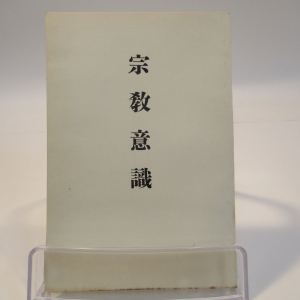 宗教意識